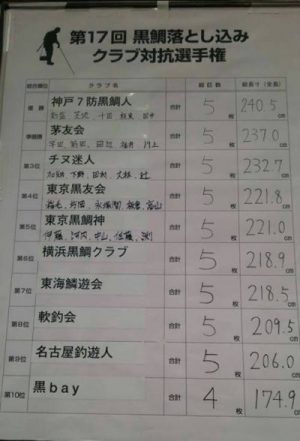 第17回 黒鯛落とし込み
クラブ対抗選手権
総合順位 クラブ名 総匹数 総長寸(全長)
優勝 神戸7防黒鯛人 合計 5枚 240.5cm
準優勝 茅友会 合計 5枚 237.0cm
第3位 チヌ迷人 合計 5枚 232.7cm
第4位 東京黒友会 合計 5枚 221.8cm
第5位 東京黒鯛神 合計 5枚 221.0cm
第6位 横浜黒鯛クラブ 合計 5枚 218.9cm
第7位 東海鱗遊会 合計 5枚 218.5cm
第8位 軟釣会 合計 5枚 209.5cm
第9位 名古屋釣遊人 合計 5枚 206.0cm
第10位 黒bay 合計 4枚 174.9cm